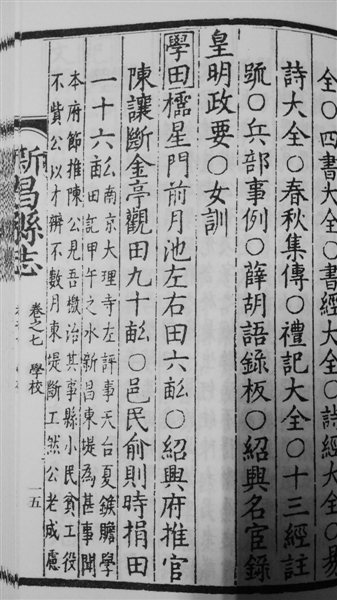 全○四書大全○書經大全○詩經大全○易
詩大全○春秋集傳○禮記大全○十三經註
號○兵部事例○薛胡語錄板○紹興名宦錄
皇明政要○女訓
學田櫺星門前月池左右田六畆○紹興府推官
陳讓斷金亭觀田九十畆○邑民俞則時捐田
一十六畆南京大理寺左評事天台夏鍭贍學
田記甲午之水新昌東堤為甚事聞
本府節推陳公見吾檄治其事縣小民貧工役
不貲公以才辨不數月東堤斷工然公老成慮
新昌縣志
卷之七 學校
一五